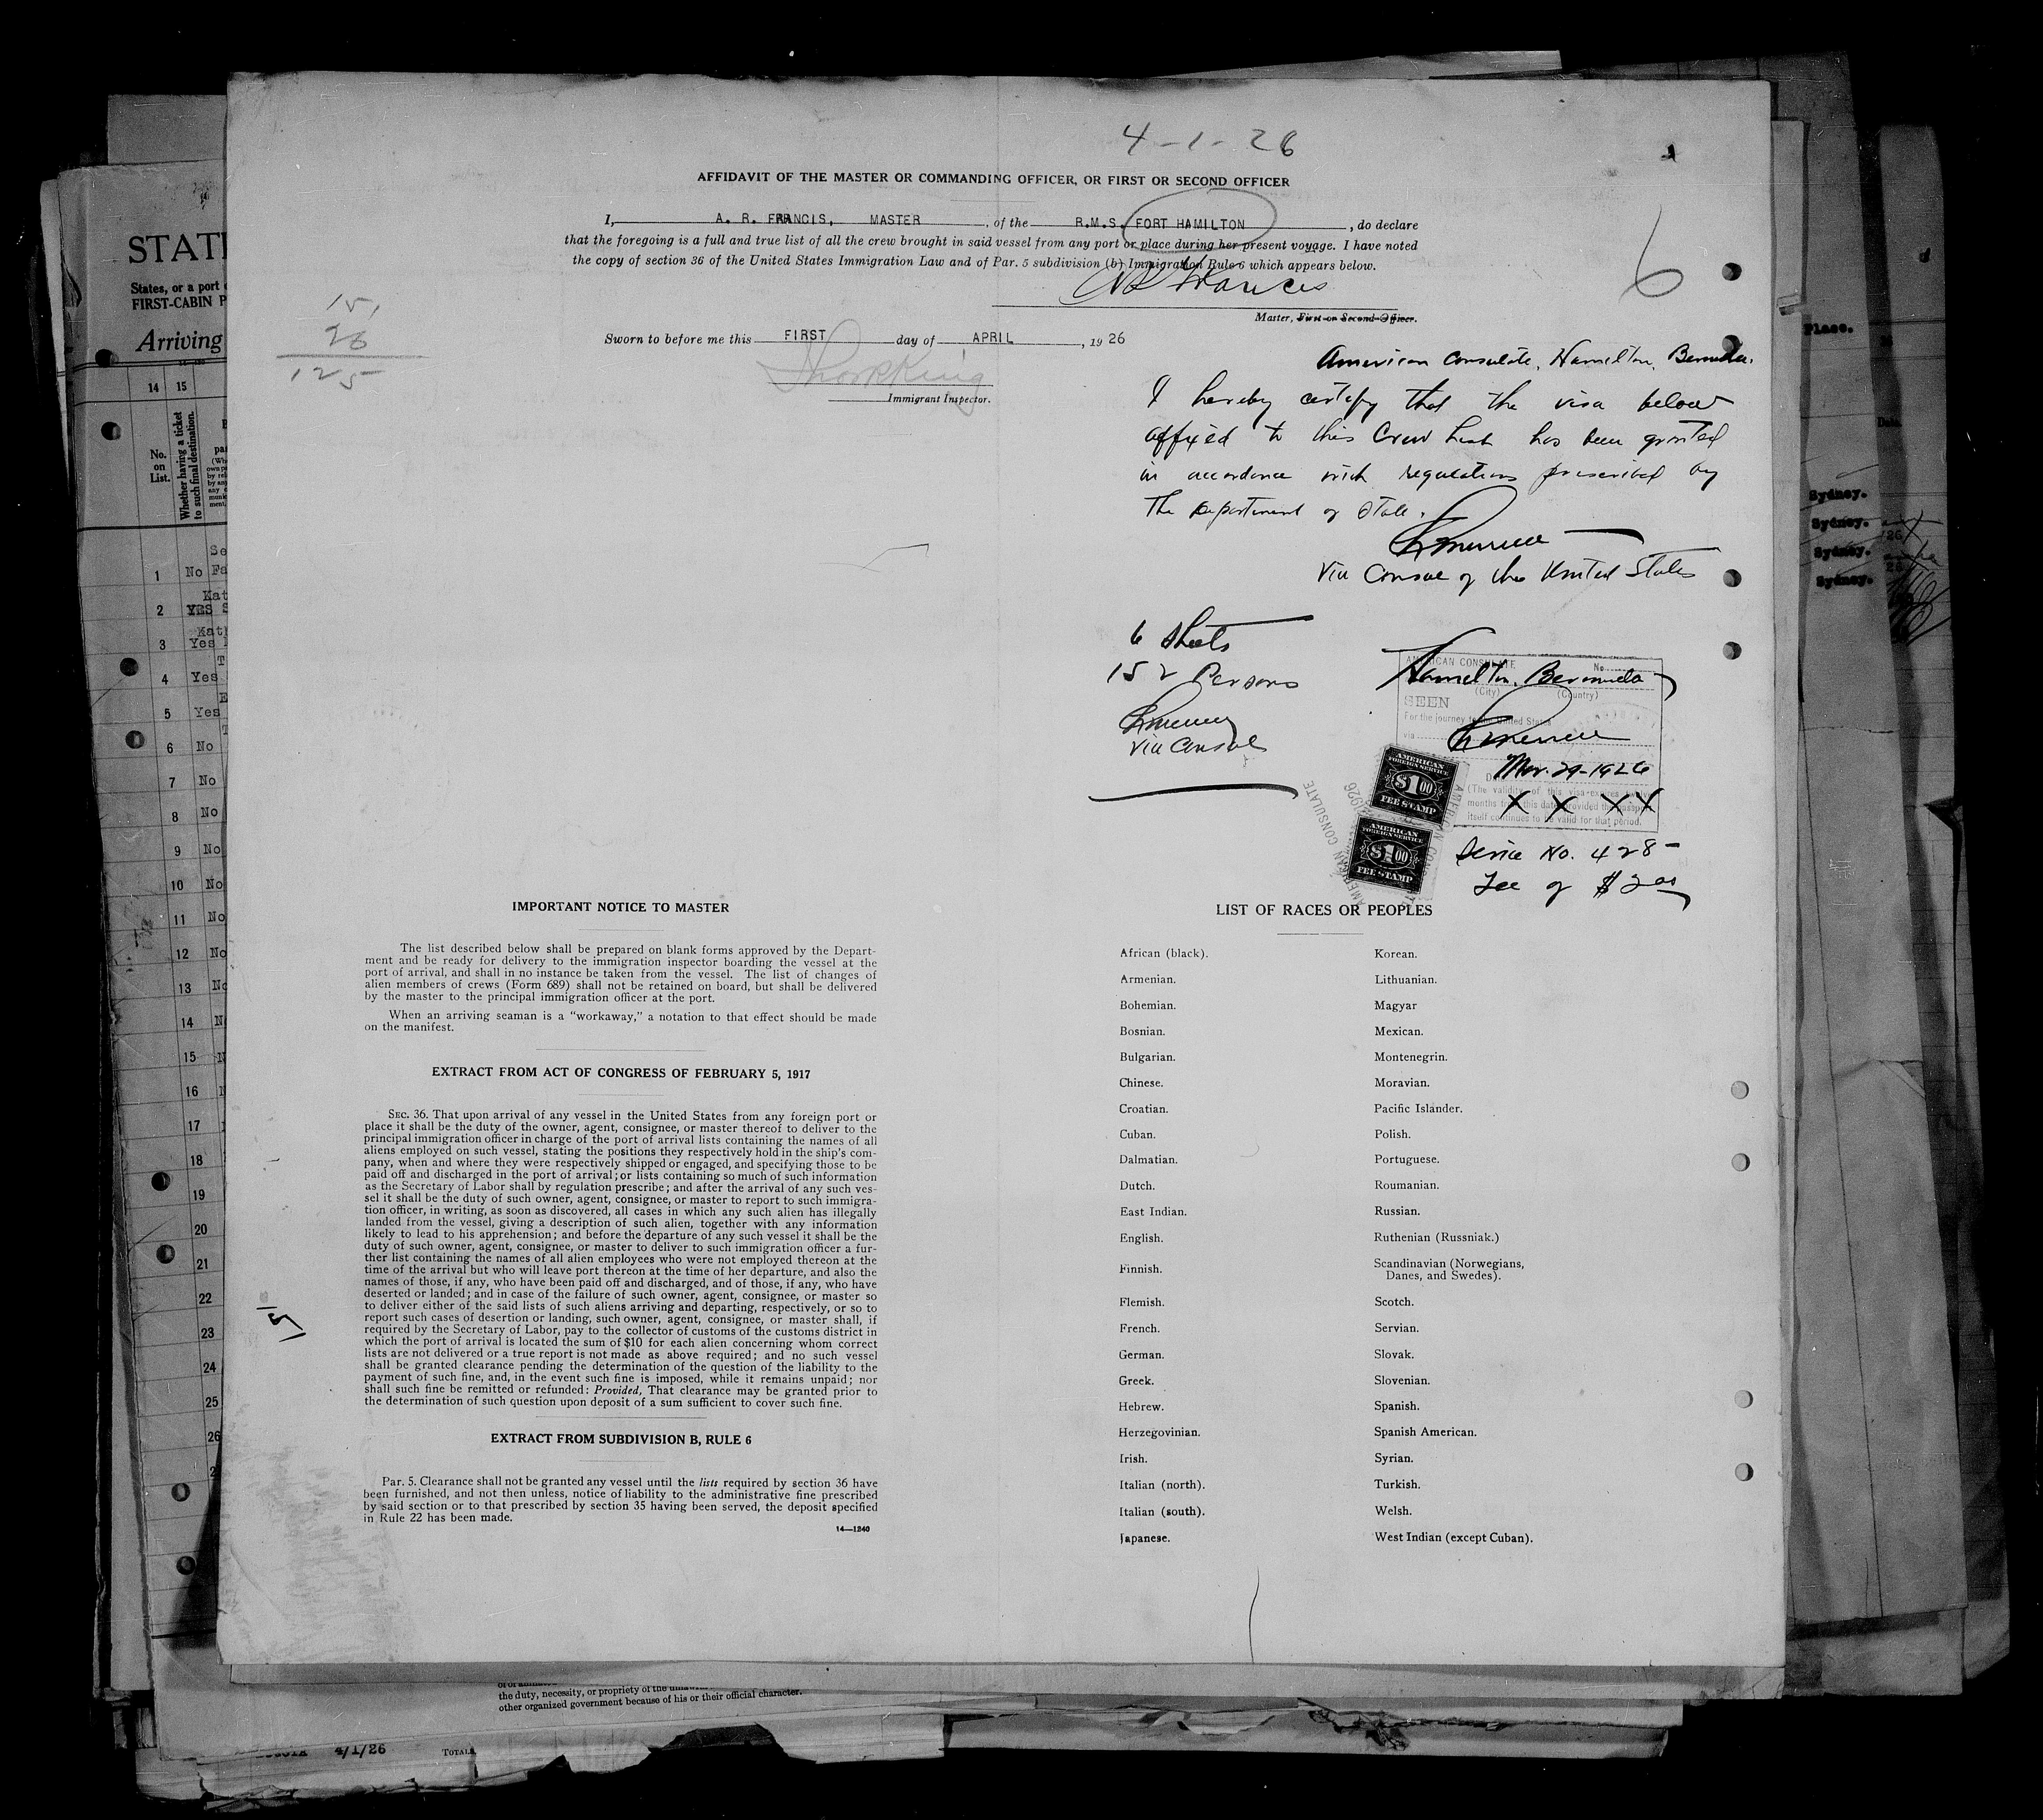 4-1-26
AFFIDAVIT OF THE MASTER OR COMMANDING OFFICER, OR FIRST OR SECOND OFFICER
I, A. R. FRANCIS, MASTER, of the R.M.S. FORT HAMILTON, do declare
that the foregoing is a full and true list of all the crew brought in said vessel from any port or place during her present voyage. I have noted
the copy of section 36 of the United States Immigration Law and of Par. 5 subdivision (b) Immigration Rule 6 which appears below.
6
A R Francis
Master, First or Second Officer.
151
26
125
Sworn to before me this FIRST day of APRIL, 19 26
Immigrant Inspector.
American Consulate, Hamilton, Bermuda.
I hereby certify that the visa below
affixed to this Crew List has been granted
in accordance with regulations prescribed by
the Department of State.
Vice Consul of the United States
6 Sheets
152 Persons
Vice Consul
AMERICAN CONSULATE No.
Hamilton, Bermuda
(City) (Country)
SEEN
For the journey to the United States
via
Mar. 29-1926
(The validity of this visa expires twelve
months from this date provided the passport
itself continues to be valid for that period.
X X X X
AMERICAN
FOREIGN SERVICE
$1.00
FEE STAMP
AMERICAN
FOREIGN SERVICE
$1.00
FEE STAMP
AMERICAN CONSULATE
Service No. 428-
Fee of $2.00
IMPORTANT NOTICE TO MASTER
The list described below shall be prepared on blank forms approved by the Depart-
ment and be ready for delivery to the immigration inspector boarding the vessel at the
port of arrival, and shall in no instance be taken from the vessel. The list of changes of
alien members of crews (Form 689) shall not be retained on board, but shall be delivered
by the master to the principal immigration officer at the port.
When an arriving seaman is a "workaway," a notation to that effect should be made
on the manifest.
EXTRACT FROM ACT OF CONGRESS OF FEBRUARY 5, 1917
SEC. 36. That upon arrival of any vessel in the United States from any foreign port or
place it shall be the duty of the owner, agent, consignee, or master thereof to deliver to the
principal immigration officer in charge of the port of arrival lists containing the names of all
aliens employed on such vessel, stating the positions they respectively hold in the ship's com-
pany, when and where they were respectively shipped or engaged, and specifying those to be
paid off and discharged in the port of arrival; or lists containing so much of such information
as the Secretary of Labor shall by regulation prescribe; and after the arrival of any such ves-
sel it shall be the duty of such owner, agent, consignee, or master to report to such immigra-
tion officer, in writing, as soon as discovered, all cases in which any such alien has illegally
landed from the vessel, giving a description of such alien, together with any information
likely to lead to his apprehension; and before the departure of any such vessel it shall be the
duty of such owner, agent, consignee, or master to deliver to such immigration officer a fur-
ther list containing the names of all alien employees who were not employed thereon at the
time of the arrival but who will leave port thereon at the time of her departure, and also the
names of those, if any, who have been paid off and discharged, and of those, if any, who have
deserted or landed; and in case of the failure of such owner, agent, consignee, or master so
to deliver either of the said lists of such aliens arriving and departing, respectively, or so to
report such cases of desertion or landing, such owner, agent, consignee, or master shall, if
required by the Secretary of Labor, pay to the collector of customs of the customs district in
which the port of arrival is located the sum of $10 for each alien concerning whom correct
lists are not delivered or a true report is not made as above required; and no such vessel
shall be granted clearance pending the determination of the question of the liability to the
payment of such fine, and, in the event such fine is imposed, while it remains unpaid; nor
shall such fine be remitted or refunded: Provided, That clearance may be granted prior to
the determination of such question upon deposit of a sum sufficient to cover such fine.
EXTRACT FROM SUBDIVISION B, RULE 6
Par. 5. Clearance shall not be granted any vessel until the lists required by section 36 have
been furnished, and not then unless, notice of liability to the administrative fine prescribed
by said section or to that prescribed by section 35 having been served, the deposit specified
in Rule 22 has been made.
14—1240
151
LIST OF RACES OR PEOPLES
African (black).
Armenian.
Bohemian.
Bosnian.
Bulgarian.
Chinese.
Croatian.
Cuban.
Dalmatian.
Dutch.
East Indian.
English.
Finnish.
Flemish.
French.
German.
Greek.
Hebrew.
Herzegovinian.
Irish.
Italian (north).
Italian (south).
Japanese.
Korean.
Lithuanian.
Magyar
Mexican.
Montenegrin.
Moravian.
Pacific Islander.
Polish.
Portuguese.
Roumanian.
Russian.
Ruthenian (Russniak.)
Scandinavian (Norwegians,
Danes, and Swedes).
Scotch.
Servian.
Slovak.
Slovenian.
Spanish.
Spanish American.
Syrian.
Turkish.
Welsh.
West Indian (except Cuban).
States, or a port
FIRST-CABIN
Arriving
14 15
No.
on
List.
Whether having a ticket
to such final destination.
1 No
2 YES
3 Yes
4 Yes
5 Yes
6 No
7 No
8 No
9 No
10 No
11 No
12 No
13 No
14
15
16
17
18
19
20
21
22
23
24
25
26
Place.
Sydney.
Sydney.
Sydney.
Sydney.
the duty, necessity, or propriety of the
other organized government because of his or their official character.
4/1/26 TOTALS